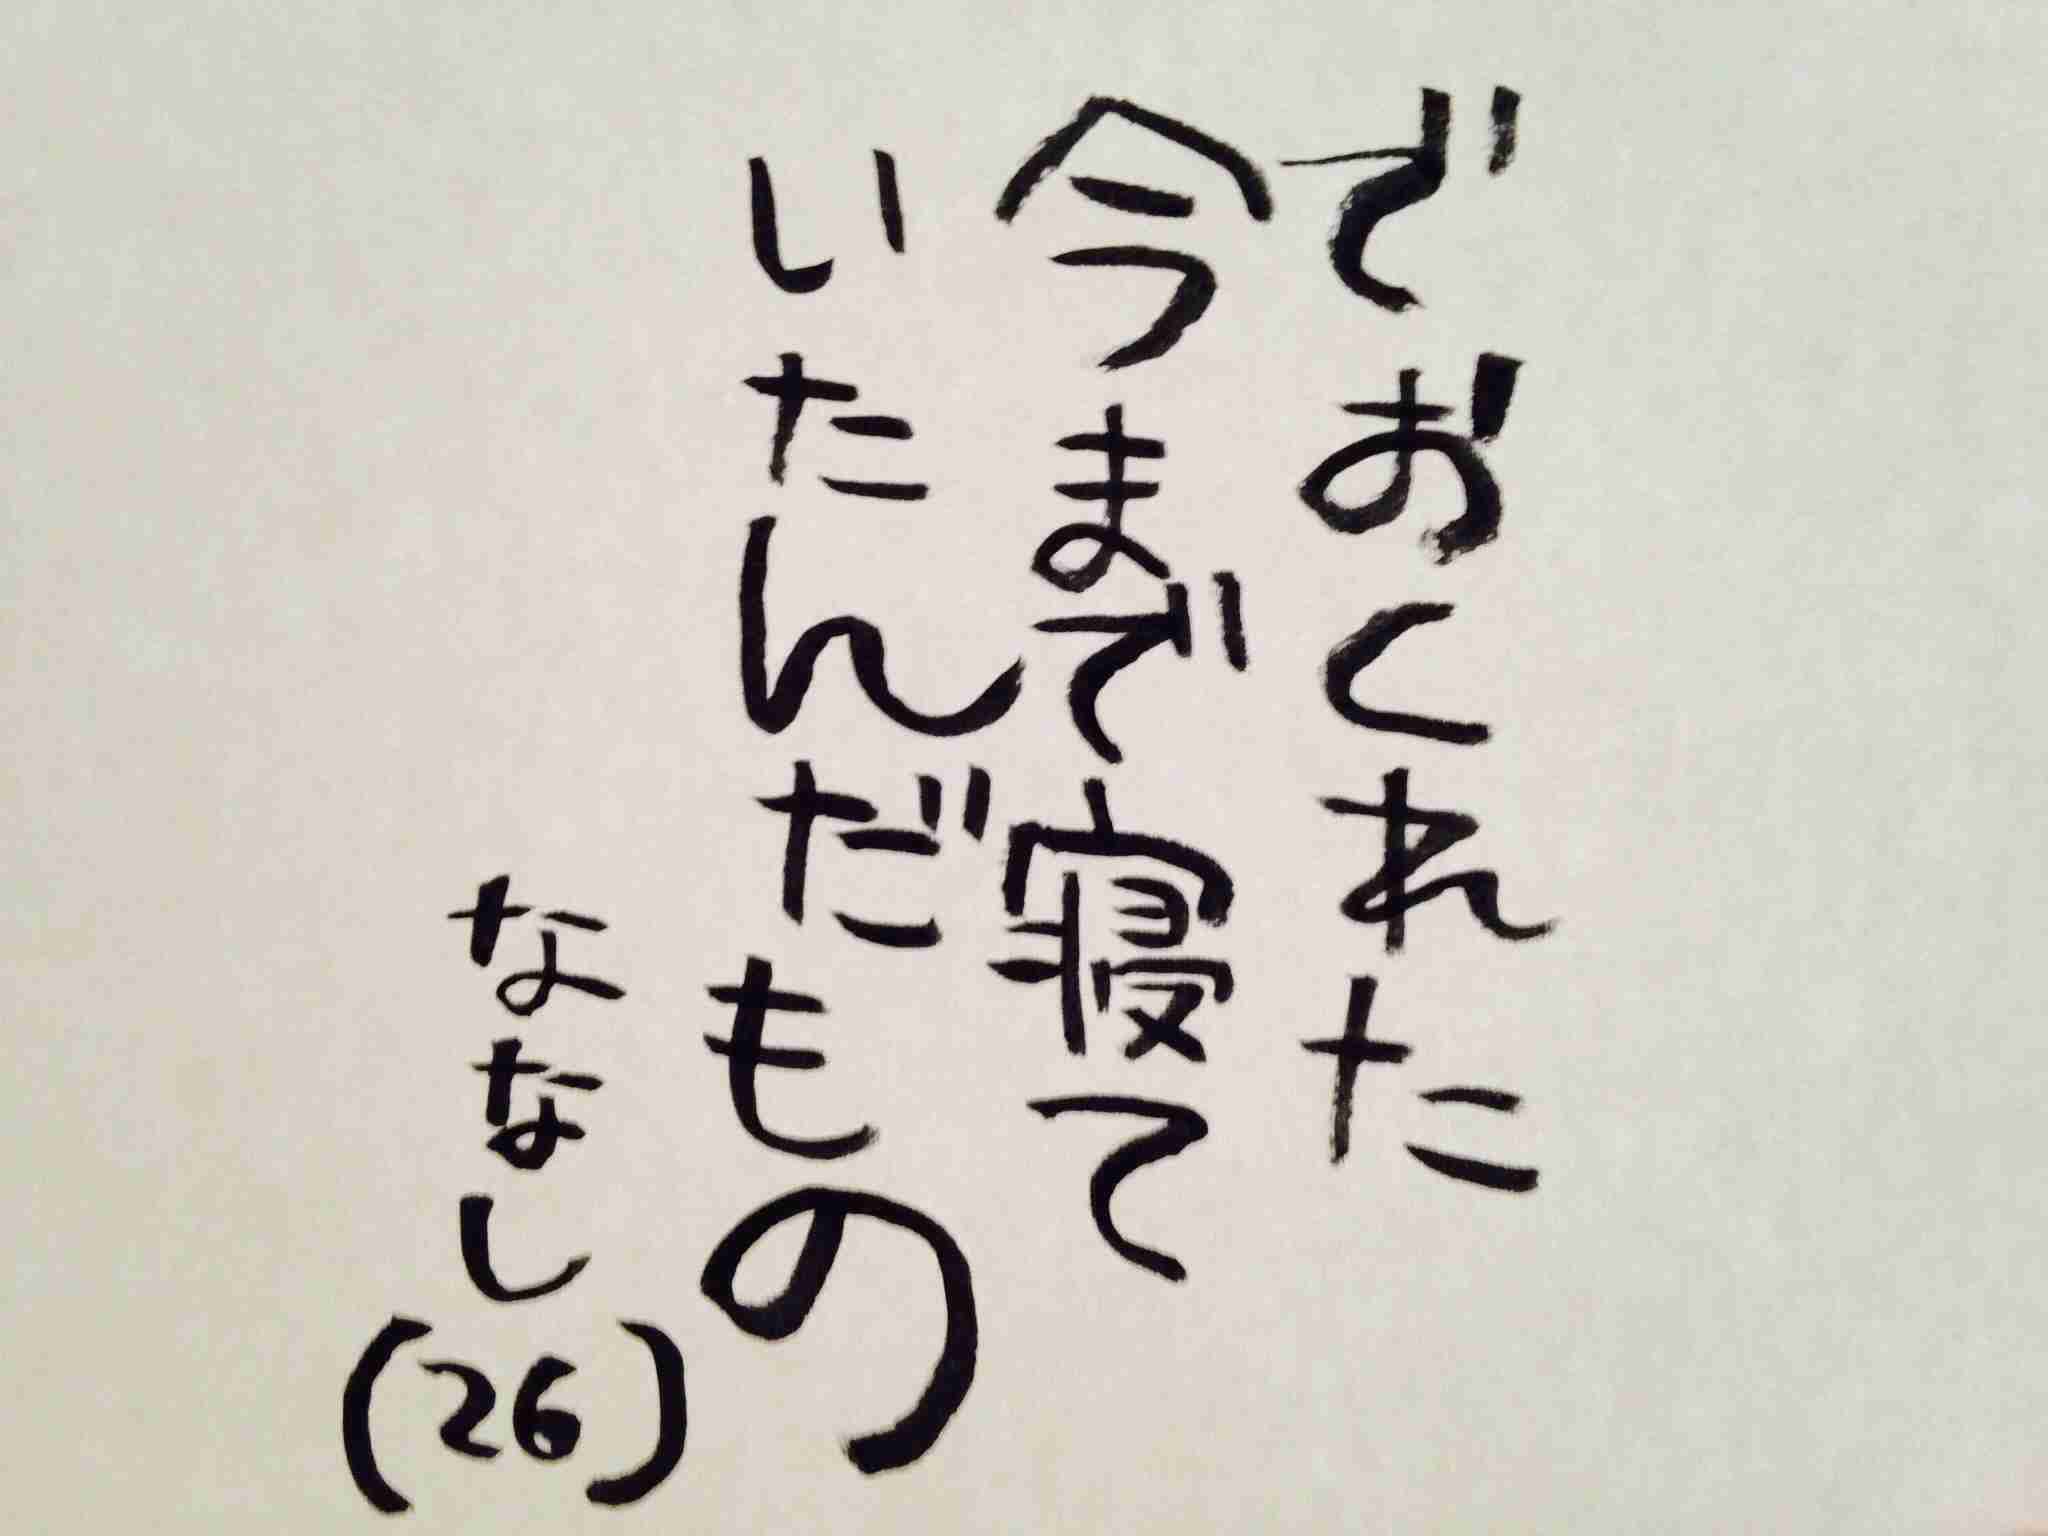 でおくれた
今まで寝て
いたんだもの
ななし(26)